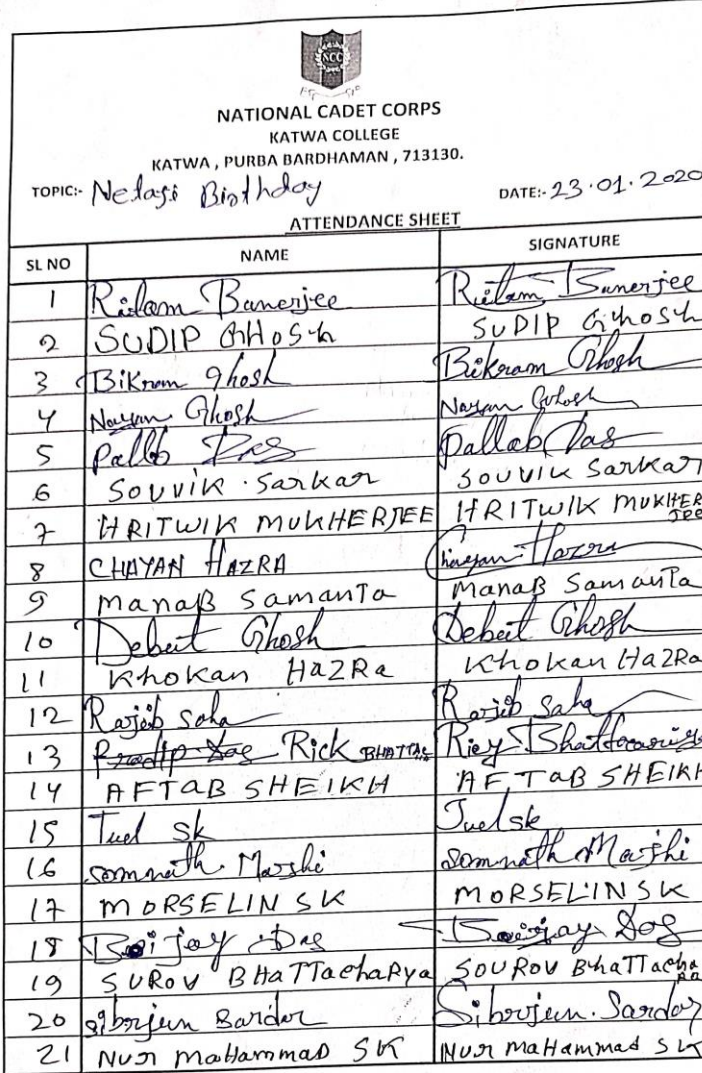 NCC
NATIONAL CADET CORPS
KATWA COLLEGE
KATWA , PURBA BARDHAMAN , 713130.
TOPIC:- Netaji Birthday DATE:- 23.01.2020
ATTENDANCE SHEET
SL NO NAME SIGNATURE
1 Ritam Banerjee Ritam Banerjee
2 SUDIP GHOSH SUDIP GHOSH
3 Bikram Ghosh Bikram Ghosh
4 Nayan Ghosh Nayan Ghosh
5 Pallb Das Pallab Das
6 SOUVIK Sarkar SOUVIK Sarkar
7 HRITWIK MUKHERJEE HRITWIK MUKHERJEE
8 CHAYAN HAZRA Chayan Hazra
9 Manab Samanta Manab Samanta
10 Debeit Ghosh Debeit Ghosh
11 Khokan HaZRa Khokan HaZRa
12 Rajib Saha Rajib Saha
13 Pradip Das Rick BHATTAC Bhattacariya
14 AFTAB SHEIKH AFTAB SHEIKH
15 Juel sk Juel sk
16 Somnath Majhi Somnath Majhi
17 MORSELIN SK MORSELIN SK
18 Boijay Das Boijay Das
19 SUROV BHaTTachaRya SOUROV BhaTTacha
20 Sibrjeun Sardar Sibrojeun Sardar
21 Nur Mahammad SK Nur Mahammad SK